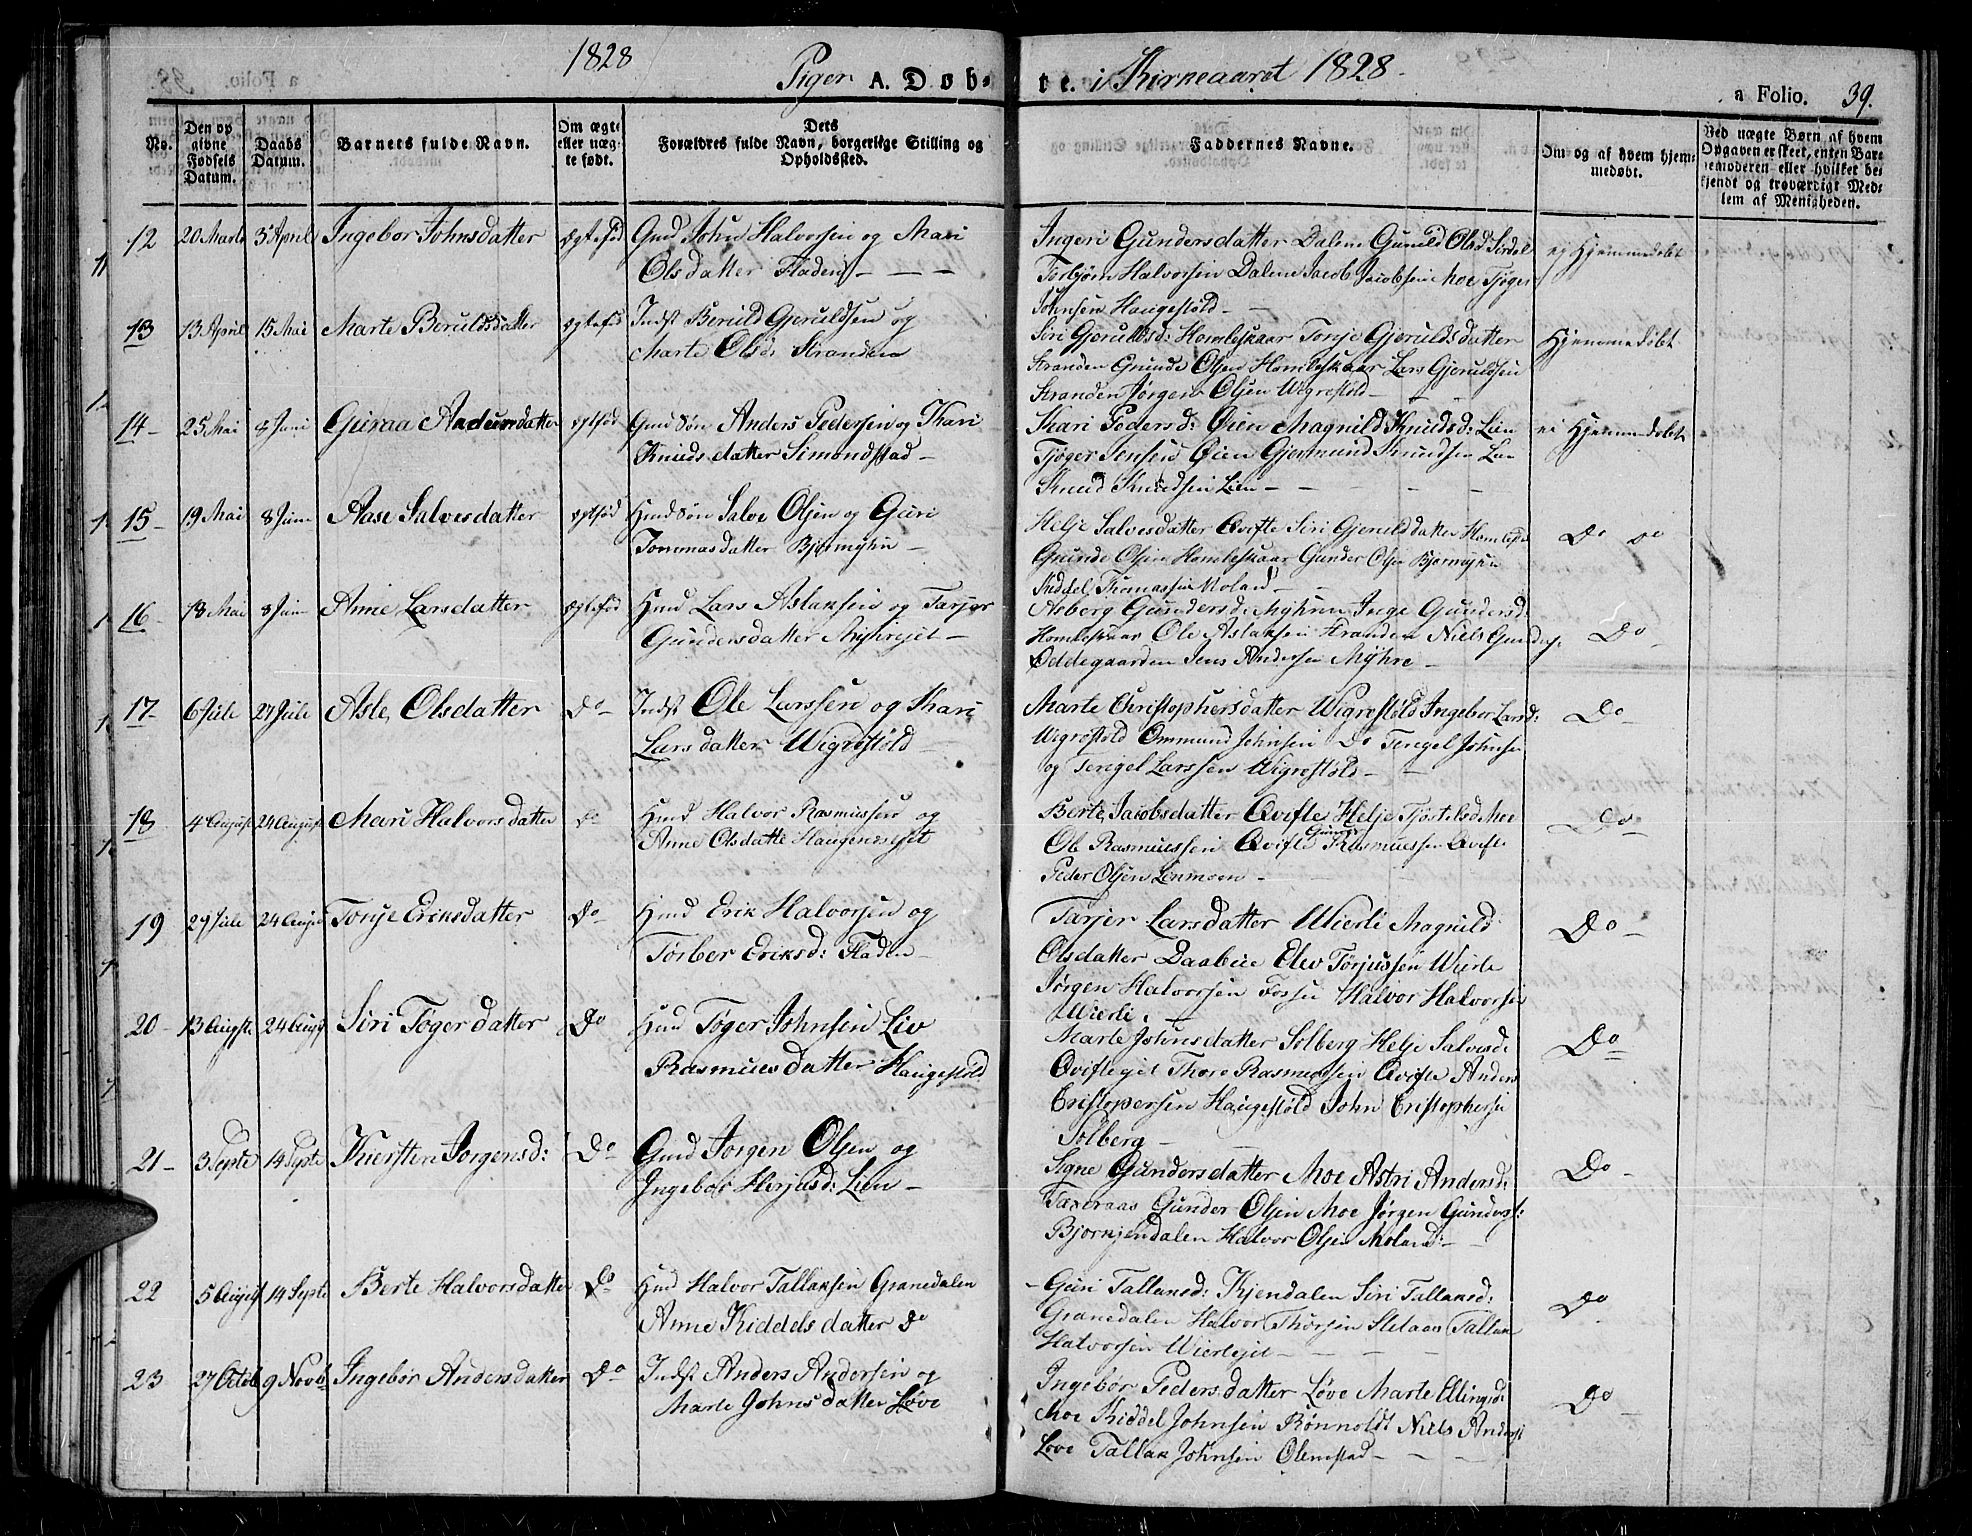 1828 Piger A. Døb- te. i Kirkeaaret 1828.
a Folio. 39.
No.
Den op
givne
Fødsels
Datum.
Daabs
Datum.
Barnets fulde Navn.
Om ægte
eller uæg-
te født.
Dets
Forældres fulde Navn, borgerlige Stilling og
Opholdssted.
Faddernes Navne.
Om og af hvem hjem-
medøbt.
Ved uægte Børn af hvem
Opgaven er skeet, enten Bar-
nemoderen eller hvilket be-
kjendt og troværdigt Med-
lem af Menigheden.
12 20 Marts 3 April Ingebor Johnsdatter ægtefød Gmd John Halvorsen og Mari
Olsdatter Fladen
Ingeri Gundersdatter Dalene Gunild Olsd Sirdel
Torbjørn Halvorsen Dalene Jacob Jacobsen Moe Tjøger
Johnsen Haugestøld
ej Hjemmedøbt
13 13 April 15 Mai Marte Beruldsdatter ægtefød Indst Beruld Gjeruldsen og
Marte Olsd: Stranden
Siri Gjeruldsd: Homleskaar Tonje Gjeruldsdatter
Stranden Gunde Olsen Homleskaar Lars Gjeruldsen
Stranden Jørgen Olsen Wigrestøld
Hjemmedøbt
14 25 Mai 8 Juni Guraa Andersdatter ægtfød Gmd Søn Anders Pedersen og Kari
Knudsdatter Simondstad
Kari Pedersd: Øien Magnild Knudsd: Lien
Tjøger Jensen Øien Gjermund Knudsen Lien
Knud Knudsen Lien
ei Hjemmedøbt
15 19 Mai 8 Juni Aase Salvesdatter ægtfød Hmd Søn Salve Olsen og Guri
Tommasdatter
Helje Salvesdatter Qvifte Siri Gjerulddatter
Gunde Olsen Homleskaar Gunder Olsen
Thomassen Moland
Do Do
16 18 Mai 8 Juni Anne Larsdatter ægtefød Hmd Lars Aslaksen og Tarjer
Gundersdatter
Aaberg Gundersd: Myhren Inge Gundersd:
Homleskaar Ole Aslaksen Stranden Niels Gunders:
Oddegaarden Jens Andersen Myhre
Do
17 6 Jule 27 Jule Asle Olsdatter Do Indst Ole Larssen og Kari
Larsdatter Wigrestøld
Marte Christophersdatter Wigrestøld Ingebor Larsd:
Wigrestøld Ommund Johnsen Do Tengel Johnsen
og Tengel Larssen Wigrestøld
Do
18 4 August 24 August Mari Halvorsdatter Do Hmd Halvor Rasmussen og
Anne Olsdatte
Berte Jacobsdatter Qvifte Helje Tjøstelsd Moe
Ole Rasmussen Qvifte Gunder Rasmussen Qvifte
Peder Olsen
Do
19 29 Jule 24 August Tonje Eriksdatter Do Hmd Erik Halvorsen og
Torber Eriksd: Fladen
Tarjer Larsdatter Wierli Magnild
Olsdatter Daabue Elev Torjussen Wierli
Jørgen Halvorsen Fosse Halvor Halvorsen
Wierli
Do
20 13 Augste 24 Augst Siri Tøgerdatter Do Hmd Tøger Johnsen Liv
Rasmusdatter Haugestøld
Marte Johnsdatter Solberg Helje Salvesd:
Qviftejet Thore Rasmussen Qvifte Anders
Cristopersen Haugestøld John Cristophersen
Solberg
Do
21 3 Septe 14 Septe Kiersten Jorgensd: Do Gmd Jorgen Olsen og
Ingebor Herjusd: Lien
Signe Gundersdatter Moe Astri Andersd:
Taxeraas Gunder Olsen Moe Jørgen Gunders:
Bjornjendalen Halvor Olsen Moland
Do
22 5 August 14 Septe Berte Halvorsdatter Do Hmd Halvor Tallaksen Granedalen
Anne Kiddelsdatter Do
Guri Tallaksd: Kjendalen Siri Tallaksd:
Granedalen Halvor Thorsen Tallak
Halvorsen Wierlejet
Do
23 27 Octob 9 Novb Ingebor Andersdatter Do Indst Anders Andersen og
Marte Johnsdatter Løve
Ingebor Pedersdatter Løve Marte Ellingsd
Moe Kiddel Johnsen Rønnoldt Niels Anders:
Løve Tallak Johnsen Olimstad
Do